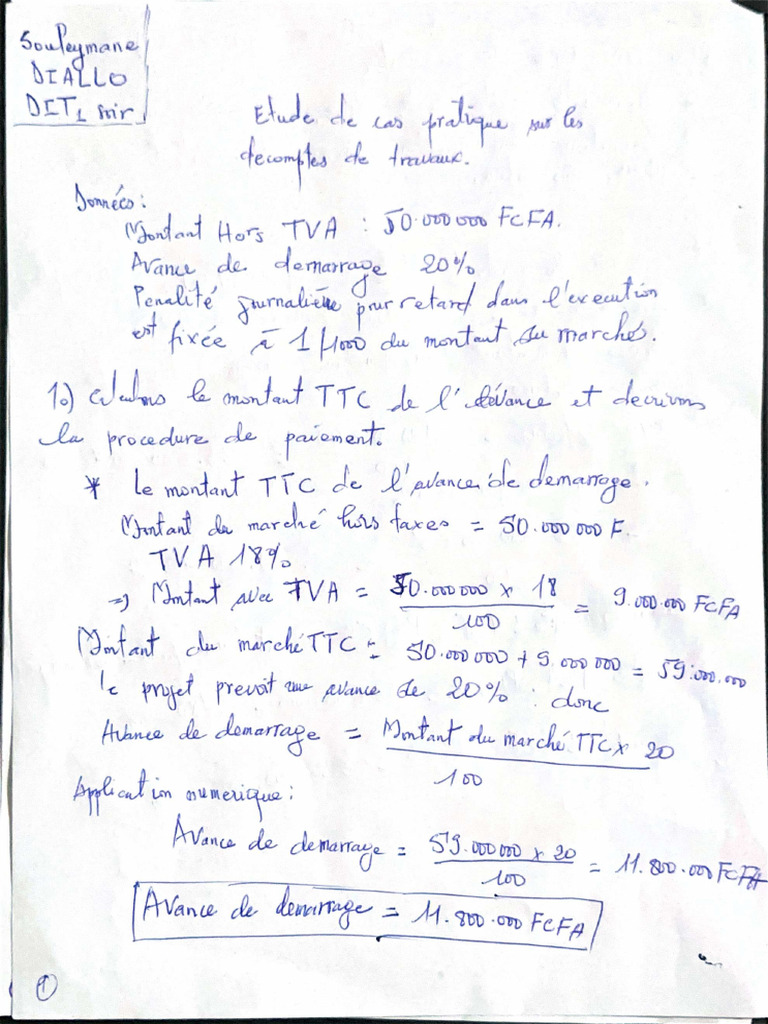 Souleymane
DIALLO
DIT1 soir
Etude de cas pratique sur les
decomptes de travaux.
Données :
Montant Hors TVA : 50.000 000 FCFA.
Avance de demarrage 20%
Penalité journalière pour retard dans l'execution
est fixée à 1/1000 du montant du marchés.
1o) Calculons le montant TTC de l' et decrivons
la procedure de paiement.
* Le montant TTC de l'avance de demarrage.
Montant du marché hors taxes = 50.000 000 F.
TVA 18%
=> Montant avec TVA = 50.000000 x 18 / 100 = 9.000.000 FCFA
Montant du marché TTC = 50.000000 + 9.000000 = 59.000.000
le projet prevoit une avance de 20% : donc
Avance de demarrage = Montant du marché TTC x 20 / 100
Application numerique :
Avance de demarrage = 59.000000 x 20 / 100 = 11.800.000 FCFA
Avance de demarrage = 11.800.000 FCFA
1